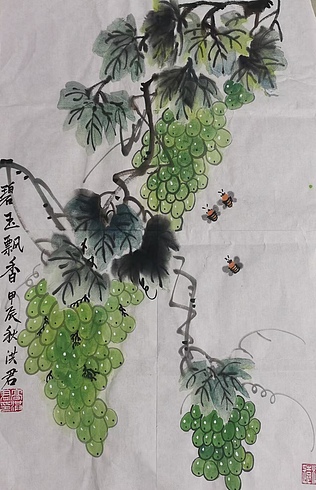 碧玉飘香甲辰秋洪君